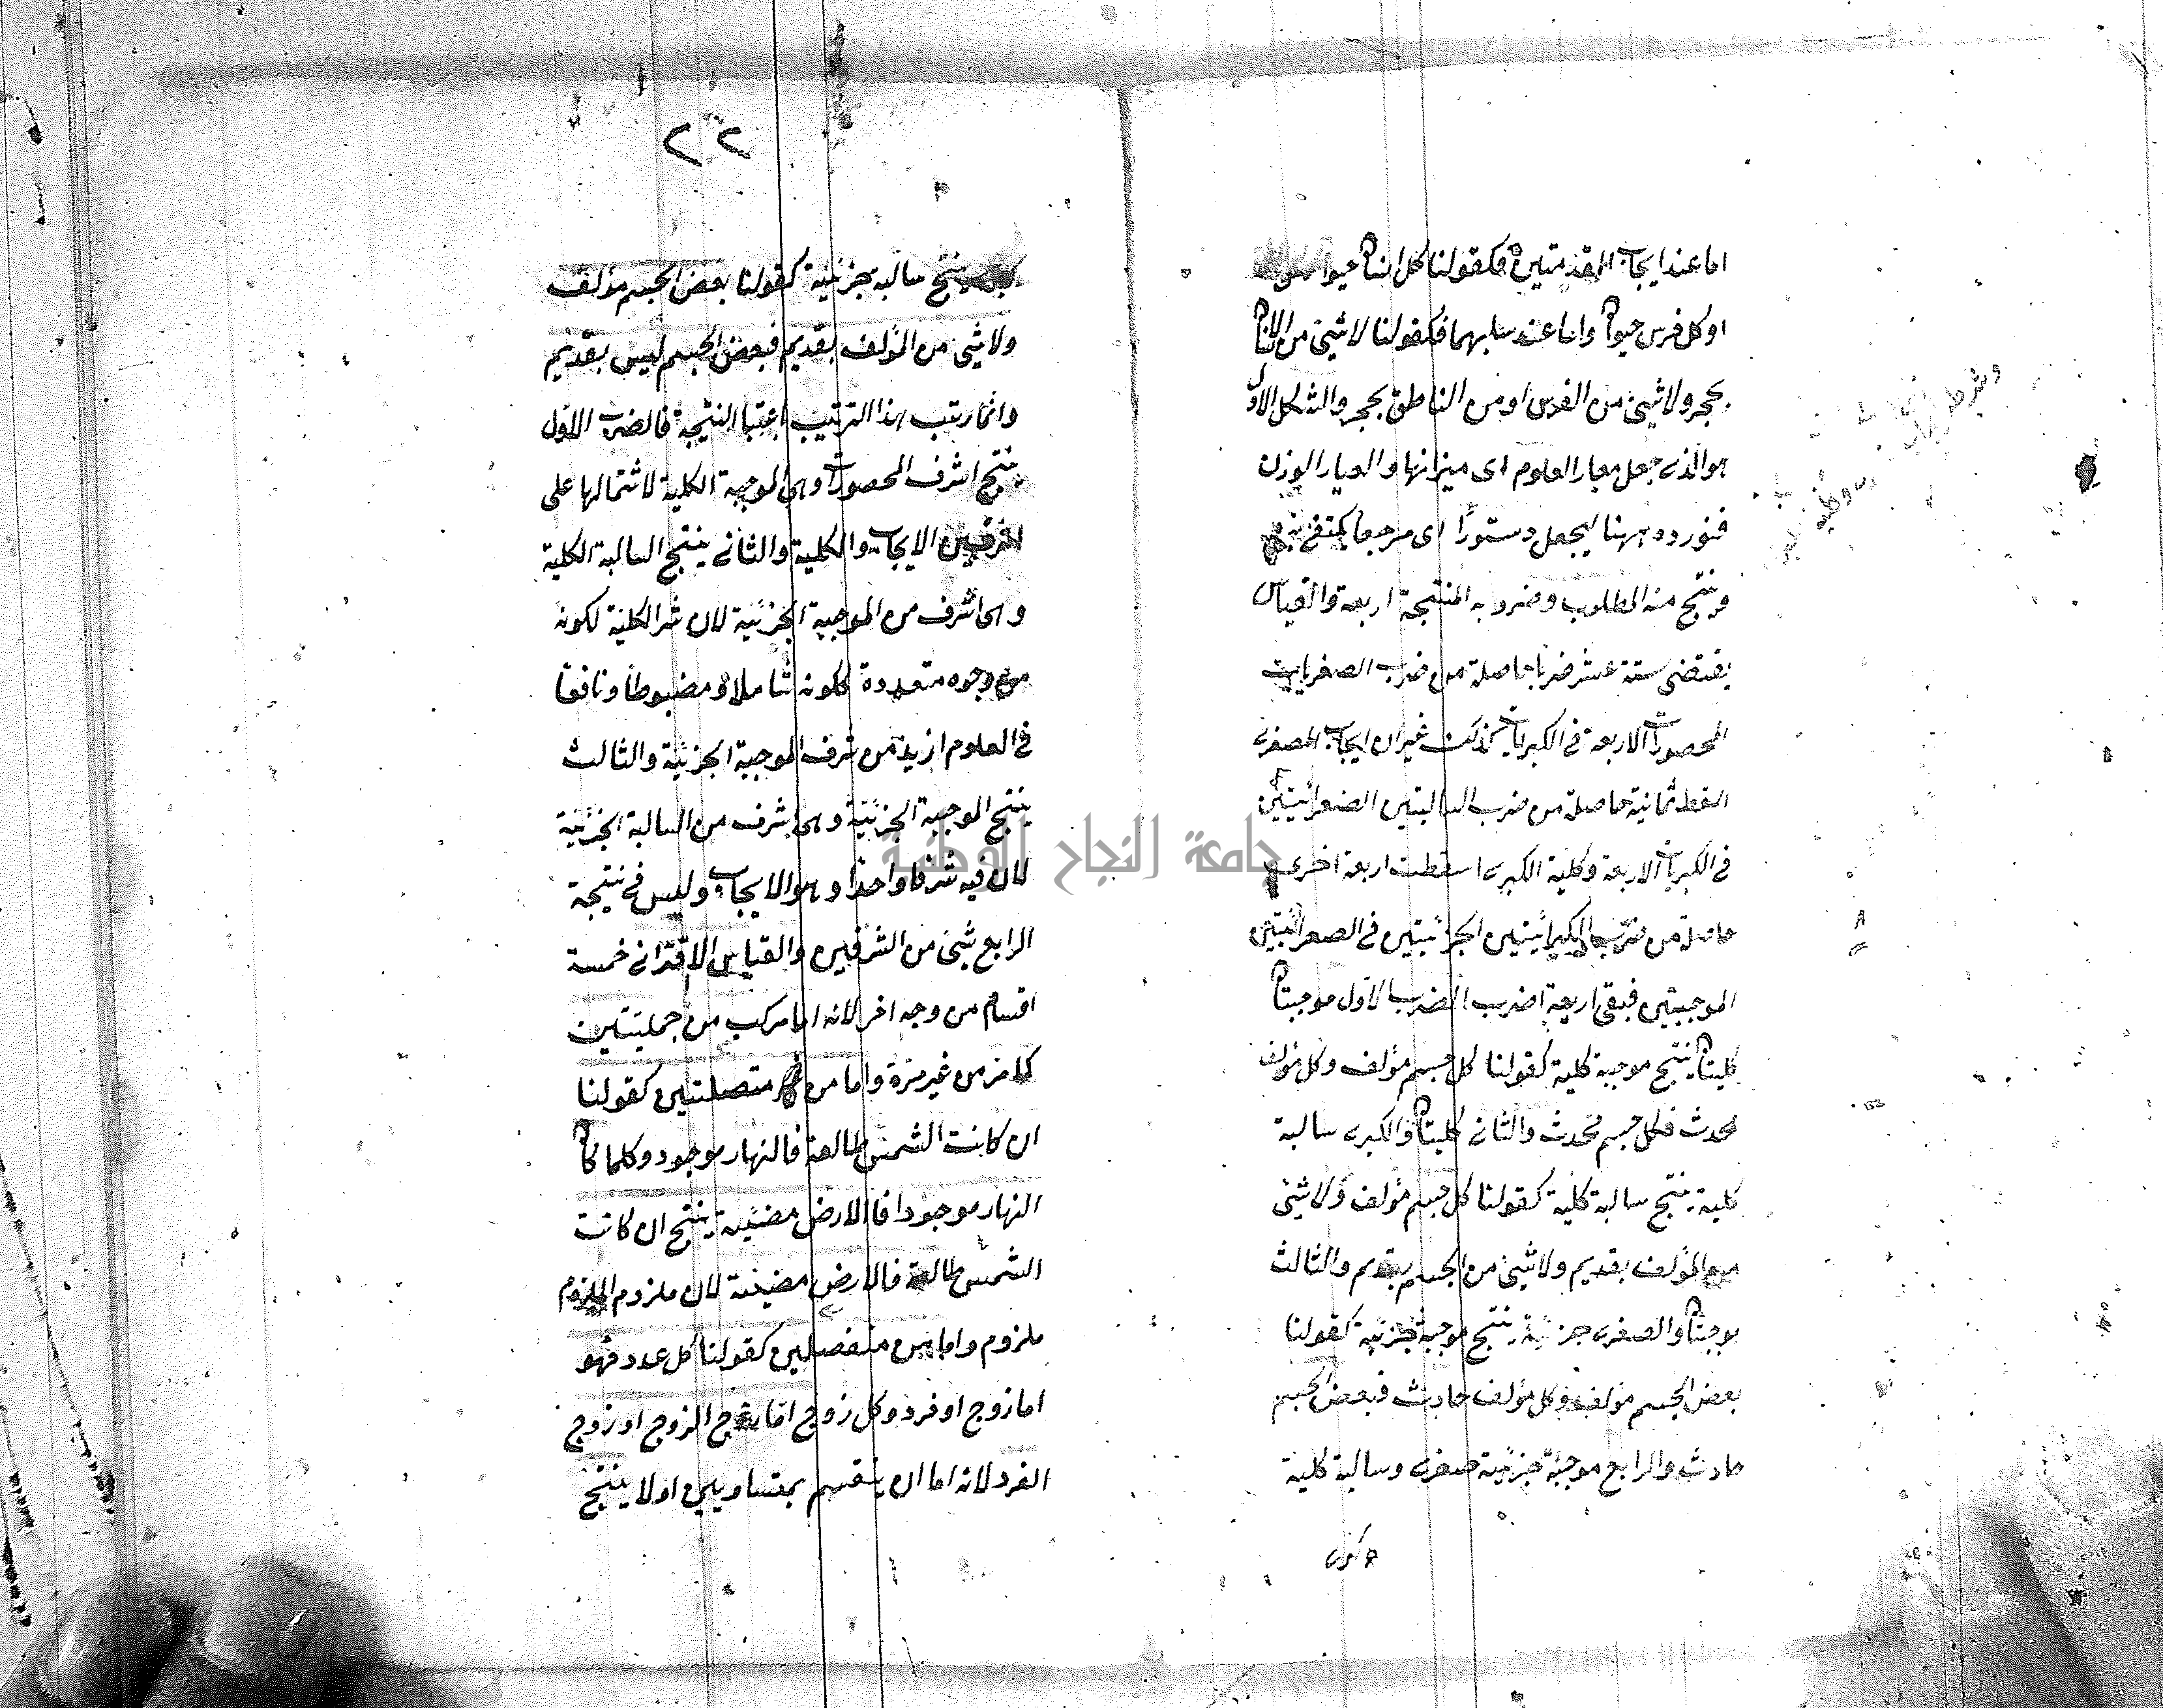 اما عند ايجاب المقدمتين فكقولنا كل انسان حيوان
او كل فرس حيوان واما عند سلبهما فكقولنا لا شئ من الانسان
بحجر ولا شئ من الفرس او من الناطق بحجر والشكل الاول
هو الذى جعل معيار العلوم اى ميزانها والعيار الوزن
فنورده ههنا ليجعل دستورًا اى مرجعا يكتفى به
وينتج منه المطلوب وضروبه المنتجة اربعة والقياس
يقتضى ستة عشر ضربا حاصلة من ضرب الصغريات
المحصورات الاربعة فى الكبريات كذلك غير ان ايجاب الصغرى
اسقط ثمانية حاصلة من ضرب السالبتين الصغرائيتين
فى الكبريات الاربعة وكلية الكبرى اسقطت اربعة اخرى
حاصلة من ضرب الكبرائيتين الجزئيتين فى الصغرائيتين
الموجبتين فبقى اربعة اضرب الضرب الاول موجبتان
كليتان ينتج موجبة كلية كقولنا كل جسم مؤلف وكل مؤلف
محدث فكل جسم محدث والثانى كليتان والكبرى سالبة
كلية ينتج سالبة كلية كقولنا كل جسم مؤلف ولا شئ
من المؤلف بقديم ولا شئ من الجسم بقديم والثالث
موجبتان والصغرى جزئية ينتج موجبة جزئية كقولنا
بعض الجسم مؤلف وكل مؤلف حادث فبعض الجسم
حادث والرابع موجبة جزئية صغرى وسالبة كلية
كبرى
٢٢
كبرى ينتج سالبة جزئية كقولنا بعض الجسم مؤلف
ولا شئ من المؤلف بقديم فبعض الجسم ليس بقديم
وانما رتب هذا الترتيب باعتبار النتيجة فالضرب الاول
ينتج اشرف المحصورات وهى الموجبة الكلية لاشتمالها على
الشرفين الايجاب والكلية والثانى ينتج السالبة الكلية
وهى اشرف من الموجبة الجزئية لان شرف الكلية لكونه
من وجوه متعددة ككونه شاملا ومضبوطا ونافعا
فى العلوم ازيد من شرف الموجبة الجزئية والثالث
ينتج الموجبة الجزئية وهى اشرف من السالبة الجزئية
لان فيه شرفا واحدا وهو الايجاب وليس فى نتيجة
الرابع شئ من الشرفين والقياس الاقترانى خمسة
اقسام من وجه اخر لانه اما مركب من حمليتين
كما مر من غير مرة واما من متصلتين كقولنا
ان كانت الشمس طالعة فالنهار موجود وكلما كان
النهار موجودا فالارض مضيئة ينتج ان كانت
الشمس طالعة فالارض مضيئة لان ملزوم الملزوم
ملزوم واما من منفصلين كقولنا كل عدد فهو
اما زوج او فرد وكل زوج اما زوج الزوج او زوج
الفرد لانه اما ان ينقسم بمتساويين اولا ينتج
جامعة النجاح الوطنية